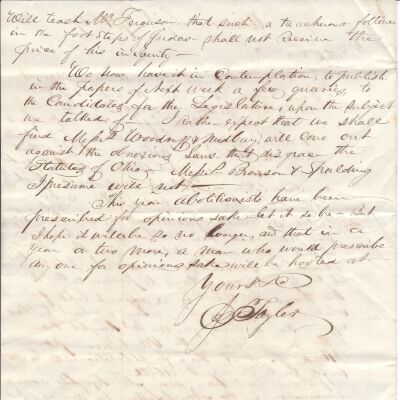 will teach Mr Ferguson, that such a treacherous follower
in the foot Steps of Judas shall not receive the
price of his iniquity —
We now have it in Contemplation, to publish
in the papers of next week a few queries, to
the Candidates for the Legislature, upon the subject
we talked of I rather expect that we shall
find Messrs Woodruff & Medbury, will come out
against the obnoxious Laws that disgrace the
Statutes of Ohio, Messrs Bronson & Spalding
I presume will not —
This year abolitionists have been
proscribed for opinions sake let it so be — But
I hope it will be so no longer, and that in a
year or two more, a man who would proscribe
any one for opinions sake will be hooted at
Yours &c
Tayler